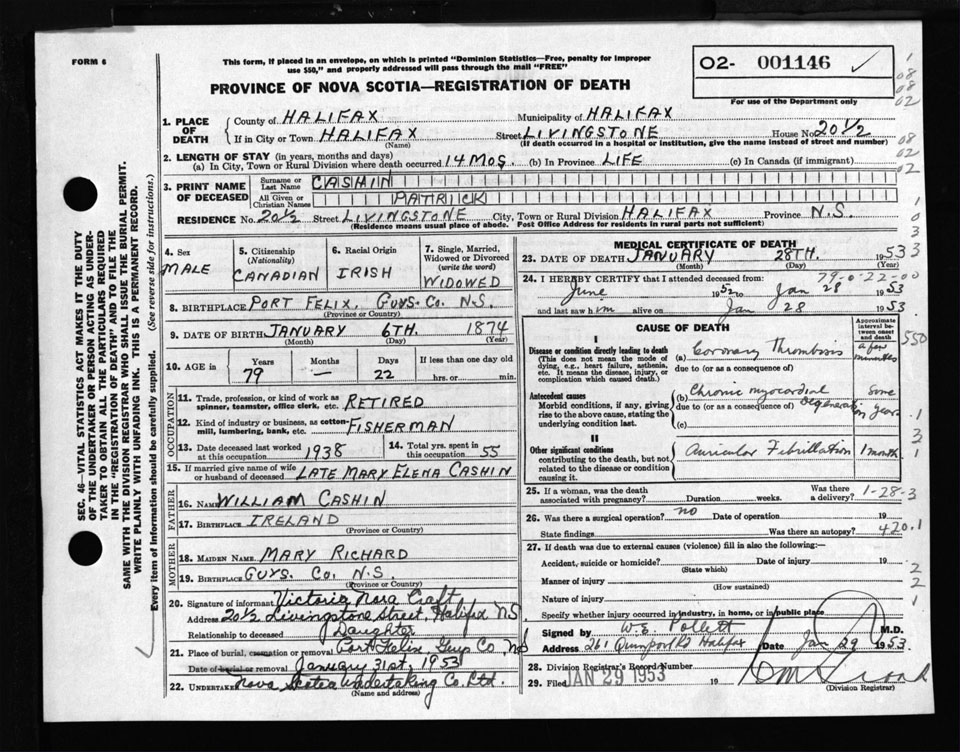 FORM 6
This form, if placed in an envelope, on which is printed "Dominion Statistics—Free, penalty for improper
use $50," and properly addressed will pass through the mail "FREE"
PROVINCE OF NOVA SCOTIA—REGISTRATION OF DEATH
02- 001146 ✓
For use of the Department only
1. PLACE OF DEATH
County of HALIFAX Municipality of HALIFAX
If in City or Town HALIFAX Street LIVINGSTONE House No. 20 1/2
(Name) (If death occurred in a hospital or institution, give the name instead of street and number)
2. LENGTH OF STAY (in years, months and days)
(a) In City, Town or Rural Division where death occurred 14 MOS. (b) In Province LIFE (c) In Canada (if immigrant)
3. PRINT NAME OF DECEASED
Surname or Last Name CASHIN
All Given or Christian Names PATRICK
RESIDENCE No. 20 1/2 Street LIVINGSTONE City, Town or Rural Division HALIFAX Province N.S.
(Residence means usual place of abode. Post Office Address for residents in rural parts not sufficient)
4. Sex MALE
5. Citizenship (Nationality) CANADIAN
6. Racial Origin IRISH
7. Single, Married, Widowed or Divorced (write the word) WIDOWED
8. BIRTHPLACE PORT FELIX, GUYS. CO. N.S.
(Province or Country)
9. DATE OF BIRTH JANUARY 6TH. 1874
(Month) (Day) (Year)
10. AGE in Years 79 Months — Days 22 If less than one day old
hrs. or min.
OCCUPATION
11. Trade, profession, or kind of work as spinner, teamster, office clerk, etc. RETIRED
12. Kind of industry or business, as cotton-mill, lumbering, bank, etc. FISHERMAN
13. Date deceased last worked at this occupation 1938
14. Total yrs. spent in this occupation 55
15. If married give name of wife or husband of deceased LATE MARY ELENA CASHIN
FATHER
16. Name WILLIAM CASHIN
17. BIRTHPLACE IRELAND
(Province or Country)
MOTHER
18. MAIDEN NAME MARY RICHARD
19. BIRTHPLACE GUYS. CO. N.S.
(Province or Country)
20. Signature of informant Victoria Nora Craft
Address 20 1/2 Livingstone Street, Halifax NS
Relationship to deceased Daughter
21. Place of burial, cremation or removal Port Felix, Guys Co, NS
Date of burial or removal January 31st, 1953
22. UNDERTAKER Nova Scotia Undertaking Co. Ltd.
(Name and address)
MEDICAL CERTIFICATE OF DEATH
23. DATE OF DEATH JANUARY 28TH. 1953
(Month) (Day) (Year)
79-0-22-00
24. I HEREBY CERTIFY that I attended deceased from:
June 1952 to Jan 28 1953
and last saw him alive on Jan 28 1953
CAUSE OF DEATH
Approximate interval between onset and death
I
Disease or condition directly leading to death
(This does not mean the mode of dying, e.g., heart failure, asthenia, etc. It means the disease, injury, or complication which caused death.)
(a) Coronary Thrombosis a few minutes
due to (or as a consequence of)
Antecedent causes
Morbid conditions, if any, giving rise to the above cause, stating the underlying condition last.
(b) Chronic myocardial Degeneration Some years
due to (or as a consequence of)
(c)
II
Other significant conditions
contributing to the death, but not related to the disease or condition causing it.
Auricular Fibrillation 1 month
25. If a woman, was the death associated with pregnancy? Duration weeks. Was there a delivery? 1-28-3
26. Was there a surgical operation? no Date of operation 19
State findings Was there an autopsy? 420.1
27. If death was due to external causes (violence) fill in also the following:—
Accident, suicide or homicide? Date of injury 19
(State which)
Manner of injury
(How sustained)
Nature of injury
Specify whether injury occurred in industry, in home, or in public place
Signed by W.E. Pollett M.D.
Address 261 Quinpool Rd Halifax Date Jan 29 1953.
28. Division Registrar's Record Number
29. Filed JAN 29 1953 19
(Division Registrar)
SEC. 46—VITAL STATISTICS ACT MAKES IT THE DUTY
OF THE UNDERTAKER OR PERSON ACTING AS UNDER-
TAKER TO OBTAIN ALL THE PARTICULARS REQUIRED
IN THE "REGISTRATION OF DEATH" AND TO FILE THE
SAME WITH THE DIVISION REGISTRAR WHO SHALL ISSUE THE BURIAL PERMIT.
WRITE PLAINLY WITH UNFADING INK. THIS IS A PERMANENT RECORD.
Every item of Information should be carefully supplied. (See reverse side for instructions.)
1
08
08
02
08
02
02
1
0
3
3
550
1
3
1
2
2
1